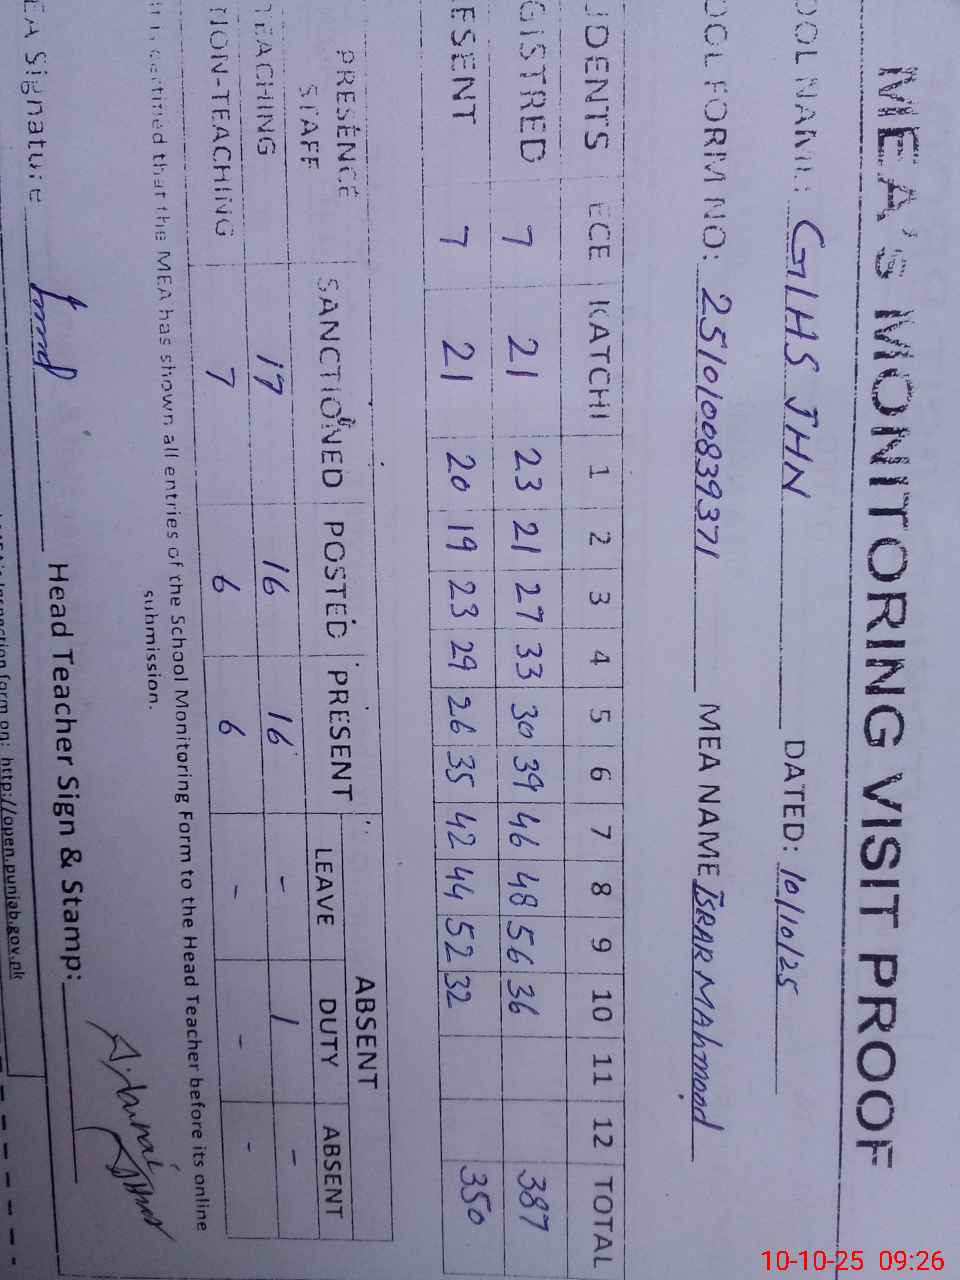 MEA'S MONITORING VISIT PROOF
OOL NAME: GHS JHN DATED: 10/10/25
OOL FORM NO: 2510100839371 MEA NAME ISRAR MAhmood
UDENTS ECE KATCHI 1 2 3 4 5 6 7 8 9 10 11 12 TOTAL
GISTRED 7 21 23 21 27 33 30 39 46 48 56 36 387
ESENT 7 21 20 19 23 29 26 35 42 44 52 32 350
PRESENCE STAFF SANCTIONED POSTED PRESENT ABSENT
LEAVE DUTY ABSENT
TEACHING 17 16 16 - 1 -
NON-TEACHING 7 6 6 - - -
It is certified that the MEA has shown all entries of the School Monitoring Form to the Head Teacher before its online
submission.
EA Signature Head Teacher Sign & Stamp:
Inspection form on: http://open.punjab.gov.pk
10-10-25 09:26